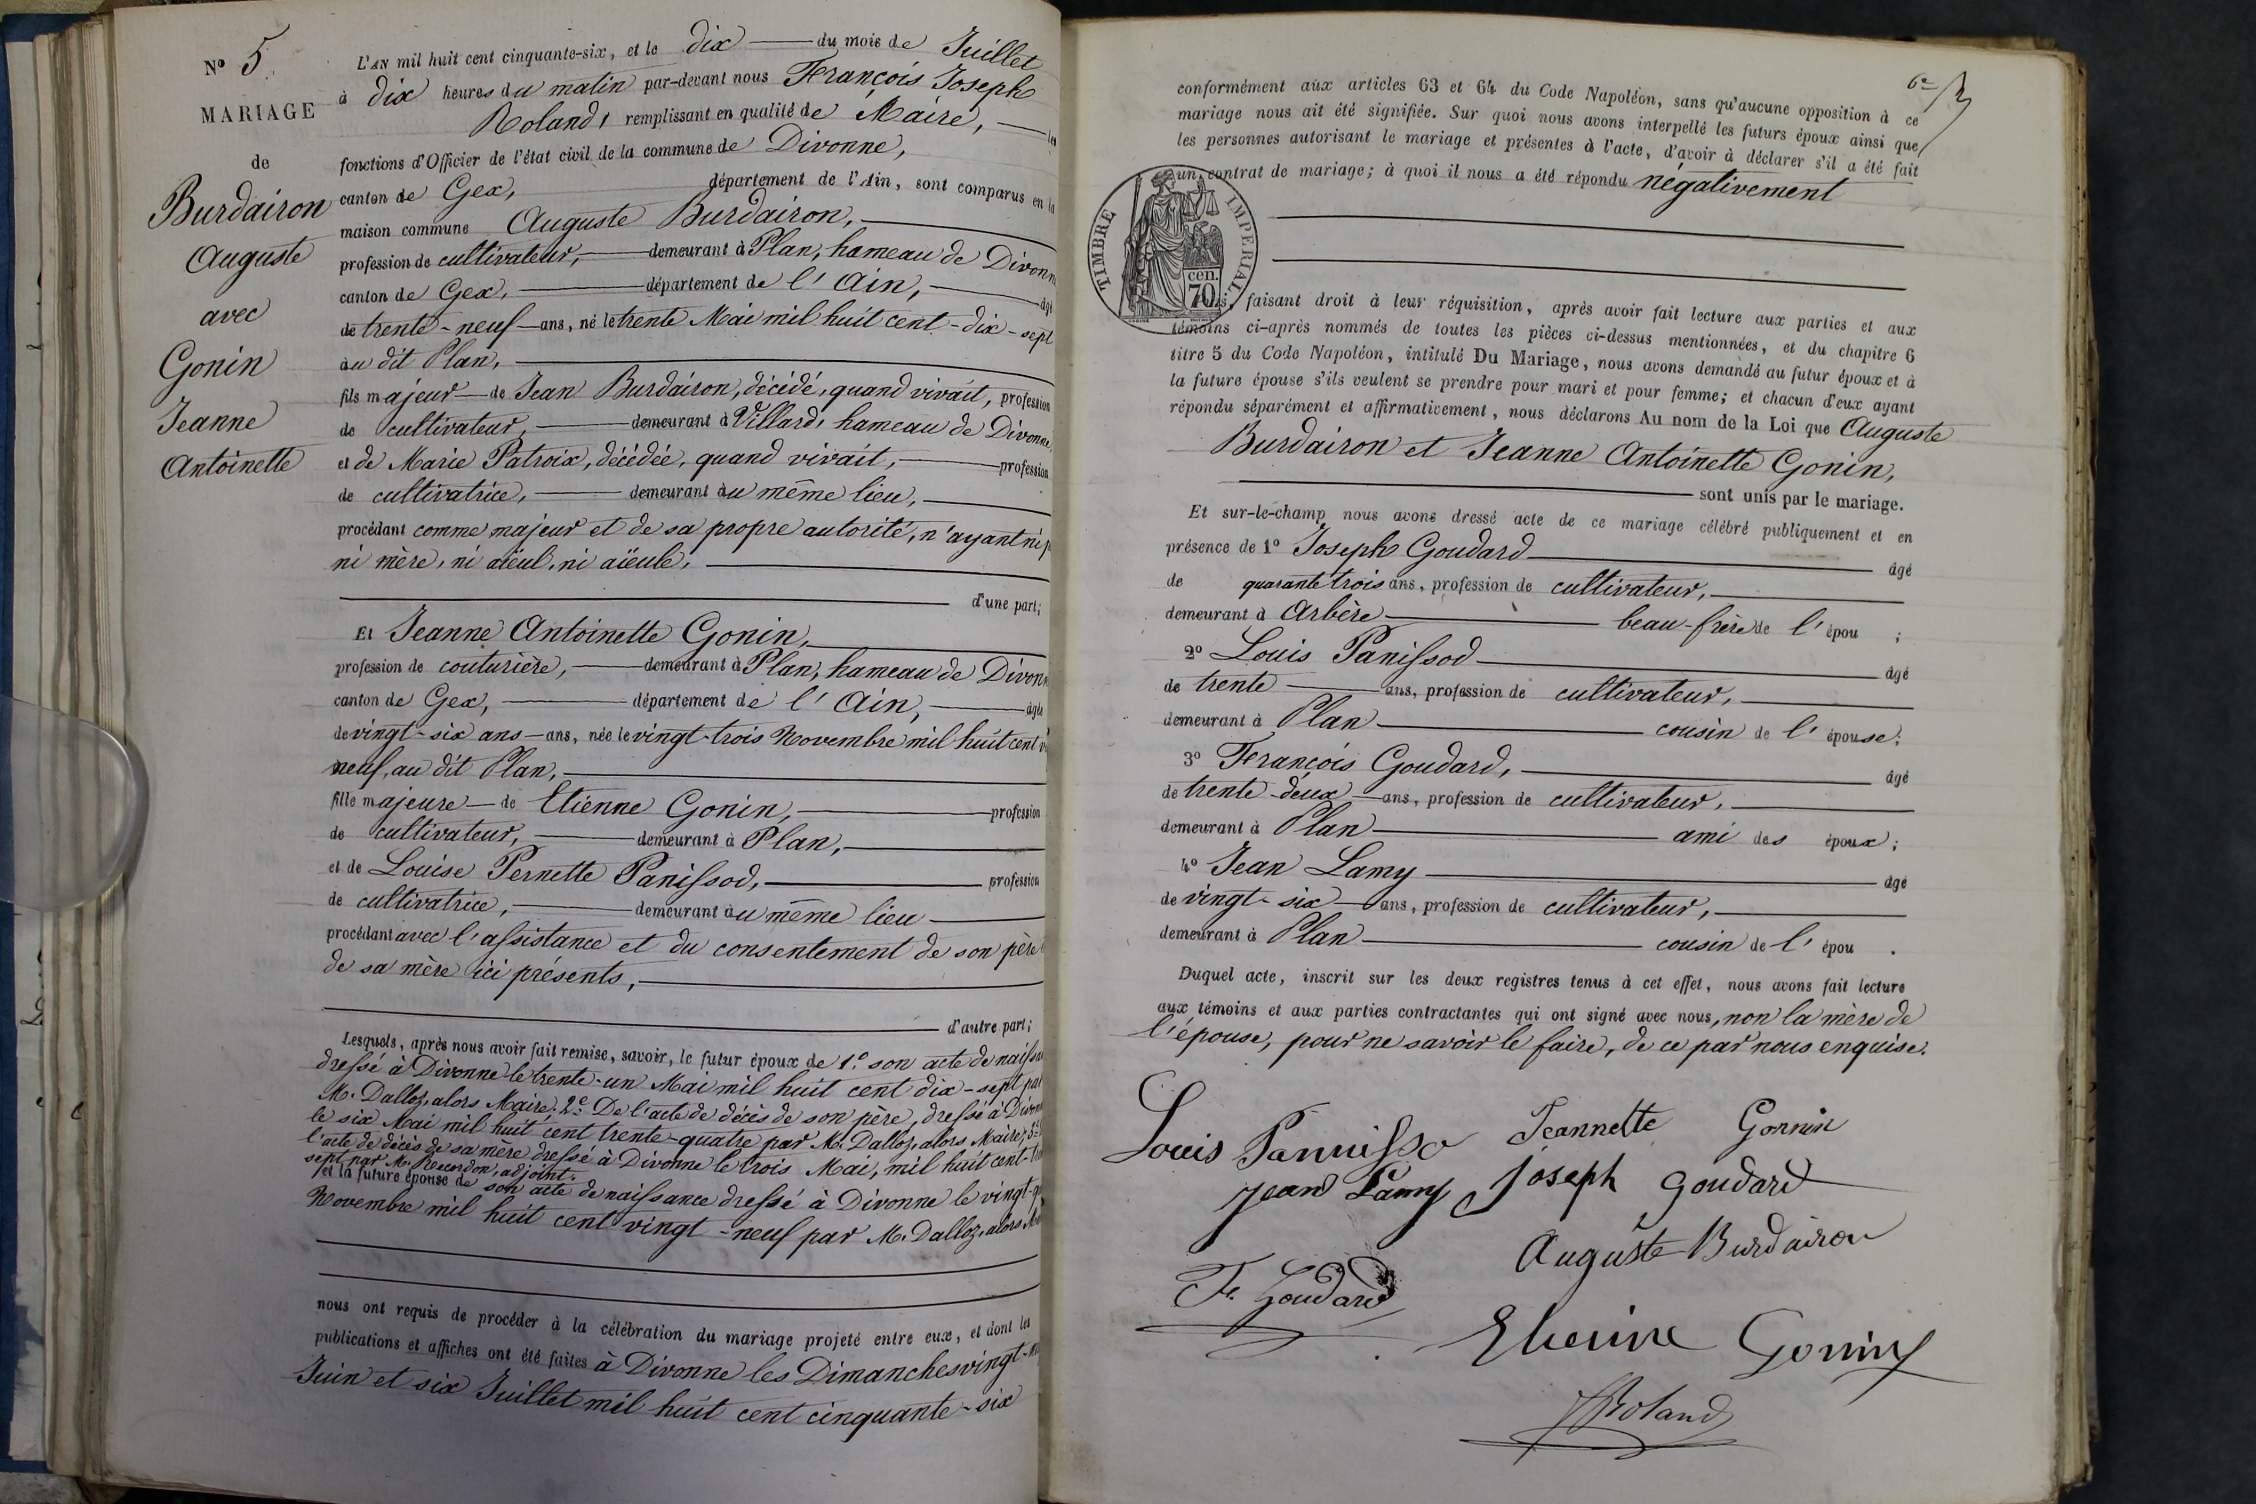 N° 5
MARIAGE
de
Burdairon
Auguste
avec
Gonin
Jeanne
Antoinette
L'AN mil huit cent cinquante-six, et le dix du mois de Juillet
à dix heures du matin par-devant nous François Joseph
Roland, remplissant en qualité de Maire, les
fonctions d'Officier de l'état civil de la commune de Divonne,
canton de Gex, département de l'Ain, sont comparus en la
maison commune Auguste Burdairon,
profession de cultivateur, demeurant à Plan, hameau de Divonn
canton de Gex, département de l'Ain, âgé
de trente-neuf ans, né le trente Mai mil huit cent-dix-sept
au dit Plan,
fils majeur de Jean Burdairon, décédé, quand vivait, profession
de cultivateur, demeurant à Villard, hameau de Divonne,
et de Marie Patroix, décédée, quand vivait, profession
de cultivatrice, demeurant au même lieu,
procédant comme majeur et de sa propre autorité, n'ayant ni p
ni mère, ni aïeul, ni aïeule,
d'une part;
Et Jeanne Antoinette Gonin,
profession de couturière, demeurant à Plan, hameau de Divonn
canton de Gex, département de l'Ain, âgée
de vingt-six ans ans, née le vingt-trois Novembre mil huit cent v
neuf, au dit Plan,
fille majeure de Etienne Gonin, profession
de cultivateur, demeurant à Plan,
et de Louise Pernette Panissod, profession
de cultivatrice, demeurant au même lieu
procédant avec l'assistance et du consentement de son père
de sa mère ici présents,
d'autre part;
Lesquels, après nous avoir fait remise, savoir, le futur époux de 1° son acte de naissa
dressé à Divonne le trente-un Mai mil huit cent dix-sept par
M. Dalloz, alors Maire; 2° De l'acte de décès de son père, dressé à Divonn
le six Mai mil huit cent trente-quatre par M. Dalloz, alors Maire; 3°
l'acte de décès de sa mère dressé à Divonne le trois Mai, mil huit cent-
sept par M. Recordon, adjoint.
et la future épouse de son acte de naissance dressé à Divonne le vingt-q
Novembre mil huit cent vingt-neuf par M. Dalloz, alors M
nous ont requis de procéder à la célébration du mariage projeté entre eux, et dont les
publications et affiches ont été faites à Divonne les Dimanches vingt-
Juin et six Juillet mil huit cent cinquante-six
6e
conformément aux articles 63 et 64 du Code Napoléon, sans qu'aucune opposition à ce
mariage nous ait été signifiée. Sur quoi nous avons interpellé les futurs époux ainsi que
les personnes autorisant le mariage et présentes à l'acte, d'avoir à déclarer s'il a été fait
un contrat de mariage; à quoi il nous a été répondu négativement
TIMBRE IMPERIAL
cen.
70
faisant droit à leur réquisition, après avoir fait lecture aux parties et aux
témoins ci-après nommés de toutes les pièces ci-dessus mentionnées, et du chapitre 6
titre 5 du Code Napoléon, intitulé Du Mariage, nous avons demandé au futur époux et à
la future épouse s'ils veulent se prendre pour mari et pour femme; et chacun d'eux ayant
répondu séparément et affirmativement, nous déclarons Au nom de la Loi que Auguste
Burdairon et Jeanne Antoinette Gonin,
sont unis par le mariage.
Et sur-le-champ nous avons dressé acte de ce mariage célébré publiquement et en
présence de 1° Joseph Goudard âgé
de quarante trois ans, profession de cultivateur,
demeurant à Arbère beau-frère de l'épou ;
2° Louis Panissod âgé
de trente ans, profession de cultivateur,
demeurant à Plan cousin de l'épouse;
3° François Goudard, âgé
de trente-deux ans, profession de cultivateur,
demeurant à Plan ami des époux;
4° Jean Lamy âgé
de vingt-six ans, profession de cultivateur,
demeurant à Plan cousin de l'épou .
Duquel acte, inscrit sur les deux registres tenus à cet effet, nous avons fait lecture
aux témoins et aux parties contractantes qui ont signé avec nous, non la mère de
l'épouse, pour ne savoir le faire, de ce par nous enquise.
Louis Pannisso Jeannette Gonnin
Jean Lamy Joseph Goudard
Auguste Burdairon
F. Goudard
Etienne Gonin
Roland